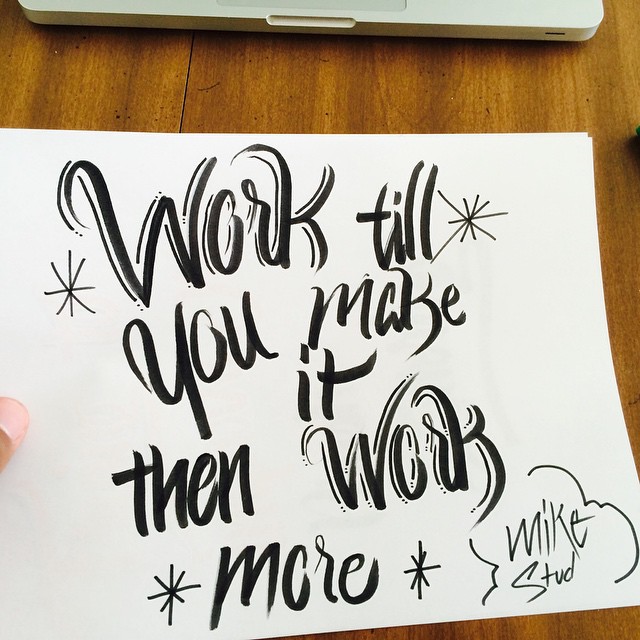 Work till
you make
it
then Work
more
Mike
Stud